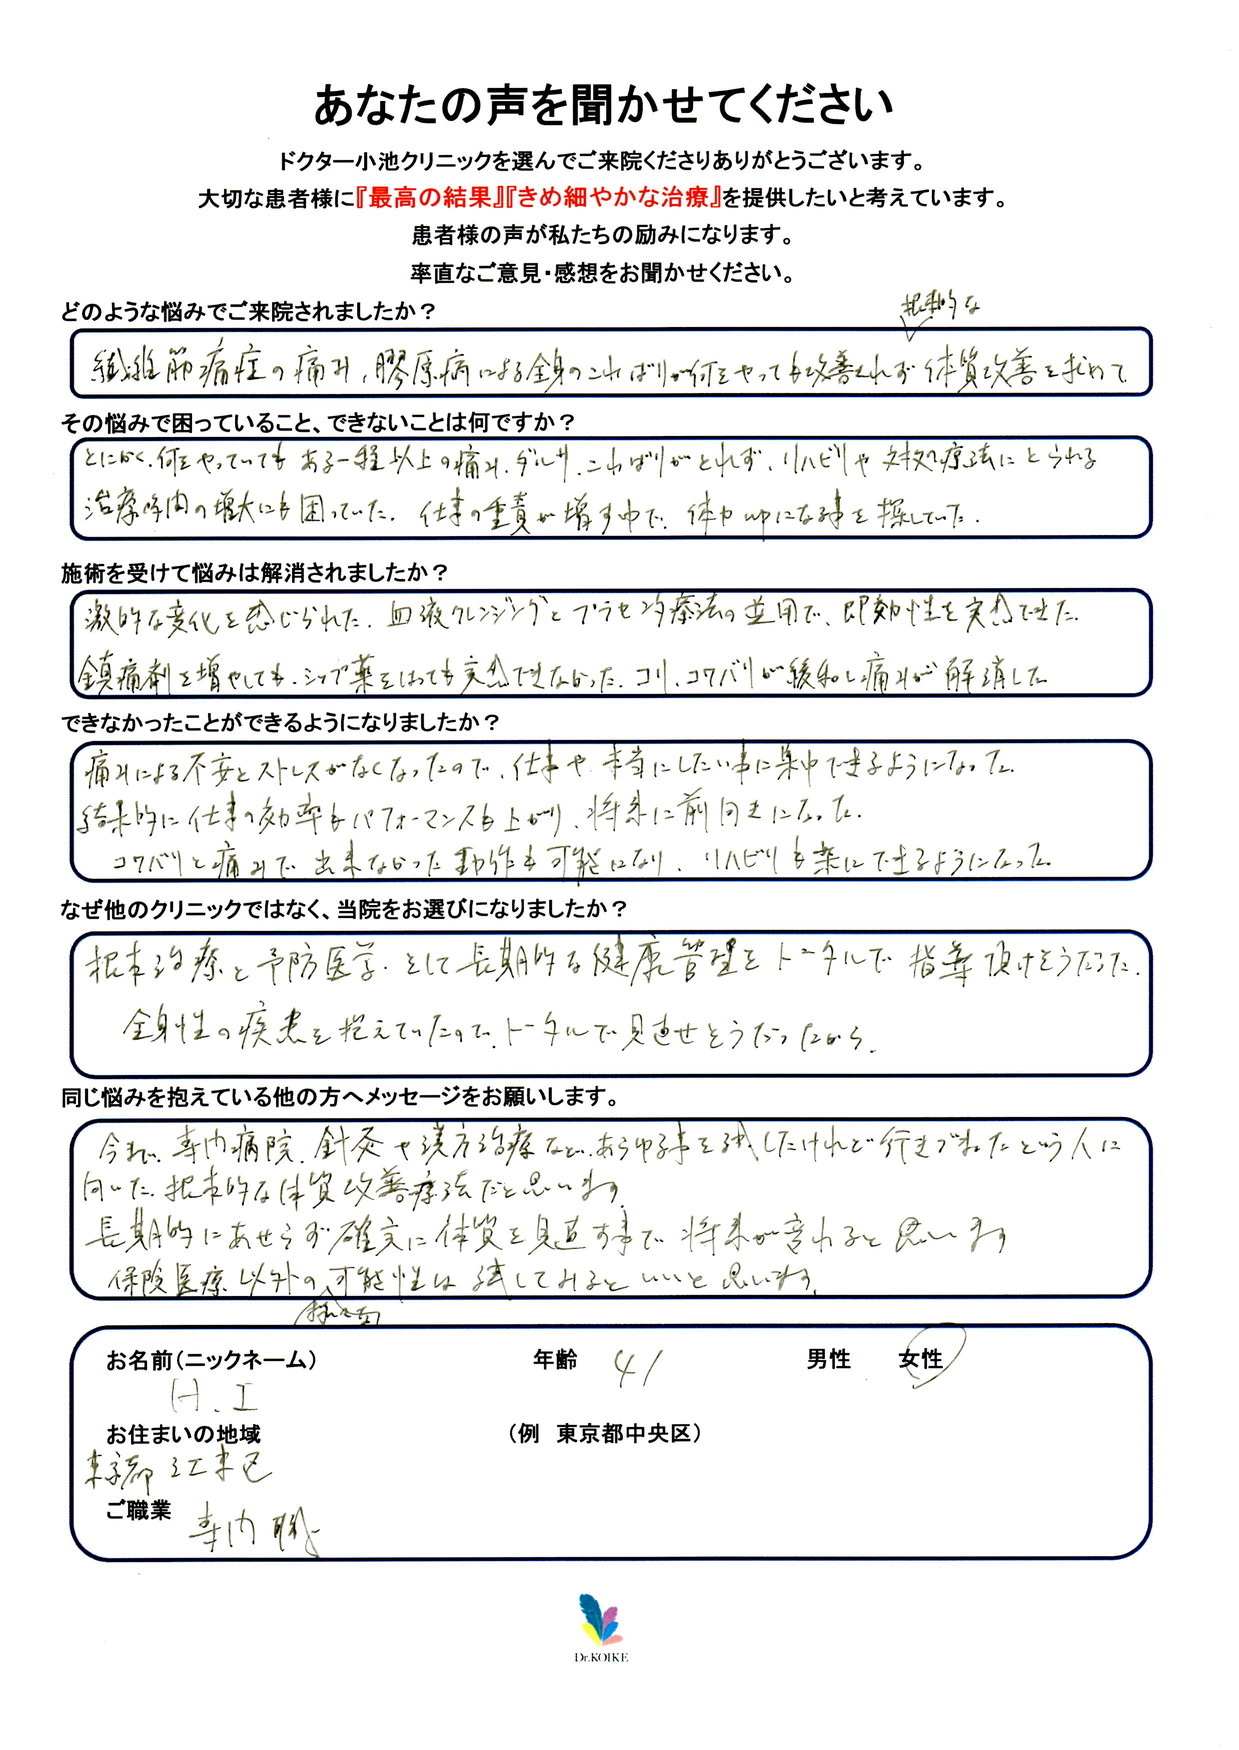 あなたの声を聞かせてください
ドクター小池クリニックを選んでご来院くださりありがとうございます。
大切な患者様に『最高の結果』『きめ細やかな治療』を提供したいと考えています。
患者様の声が私たちの励みになります。
率直なご意見・感想をお聞かせください。
どのような悩みでご来院されましたか？
根本的な
繊維筋痛症の痛み、膠原病による全身のこわばりが何をやっても改善されず体質改善を求めて
その悩みで困っていること、できないことは何ですか？
とにかく、何をやっていてもある一程以上の痛み、ダルサ、こわばりがとれず、リハビリや対処療法にとられる
治療時間の増大にも困っていた。仕事の重責が増す中で、体力upになる事を探していた。
施術を受けて悩みは解消されましたか？
激的な変化を感じられた。血液クレンジングとプラセンタ療法の並用で、即効性を実感できた。
鎮痛剤を増やしても、シップ薬をはっても実感できなかった、コリ、コワバリが緩和し痛みが解消した
できなかったことができるようになりましたか？
痛みによる不安とストレスがなくなったので、仕事や本当にしたい事に集中できるようになった。
結果的に仕事の効率もパフォーマンスも上がり、将来に前向きになった。
コワバリと痛みで出来なかった動作も可能になり、リハビリも楽にできるようになった。
なぜ他のクリニックではなく、当院をお選びになりましたか？
根本治療と予防医学、そして長期的な健康管理をトータルで指導頂けそうだった。
全身性の疾患を抱えていたので、トータルで見直せそうだったから。
同じ悩みを抱えている他の方へメッセージをお願いします。
今まで、専門病院、針灸や漢方治療など、あらゆる事を試したけれど行きづまったという人に
向いた、根本的な体質改善療法だと思います。
長期的にあせらず確実に体質を見直す事で、将来が変わると思います
保険医療以外の可能性は試してみるといいと思います。
お名前（ニックネーム）
年齢 41
男性 女性
H.I
お住まいの地域
（例 東京都中央区）
東京都 江東区
ご職業
専門職
Dr.KOIKE